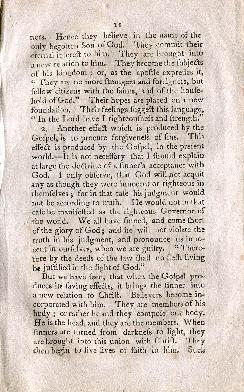 11
ness. Hence they believe in the name of the
only begotten Son of God. They commit their
eternal interest to him. They are brought into
a new relation to him. They become the subjects
of his kingdom: or, as the apostle expresses it,
" They are no more strangers and foreigners, but
fellow citizens with the saints, and of the house-
hold of God." Their hopes are placed on a new
foundation. Their feelings suggest this language,
" In the Lord have I righteousness and strength."
2. Another effect which is produced by the
Gospel, is to procure forgiveness of sins. This
effect is produced by the Gospel, in the present
world.—It is not necessary that I should explain
at large the doctrine of a sinner's acceptance with
God. I only observe, that God will not acquit
any as though they were innocent or righteous in
themselves; for in that case his judgment would
not be according to truth. He would not in that
case be manifested as the righteous Governor of
the world. We all have sinned, and come short
of the glory of God; and he will not violate the
truth in his judgment, and pronounce us inno-
cent in ourselves, when we are guilty. " There-
fore by the deeds of the law shall no flesh living
be justified in the sight of God."
But we have seen, that when the Gospel pro-
duces its saving effects, it brings the sinner into
a new relation to Christ. Believers become in-
corporated with him. They are members of his
body; or rather he and they compose one body.
He is the head, and they are the members. When
sinners are turned from darkness to light, they
are brought into this union with Christ. They
then begin to live lives of faith in him. Such